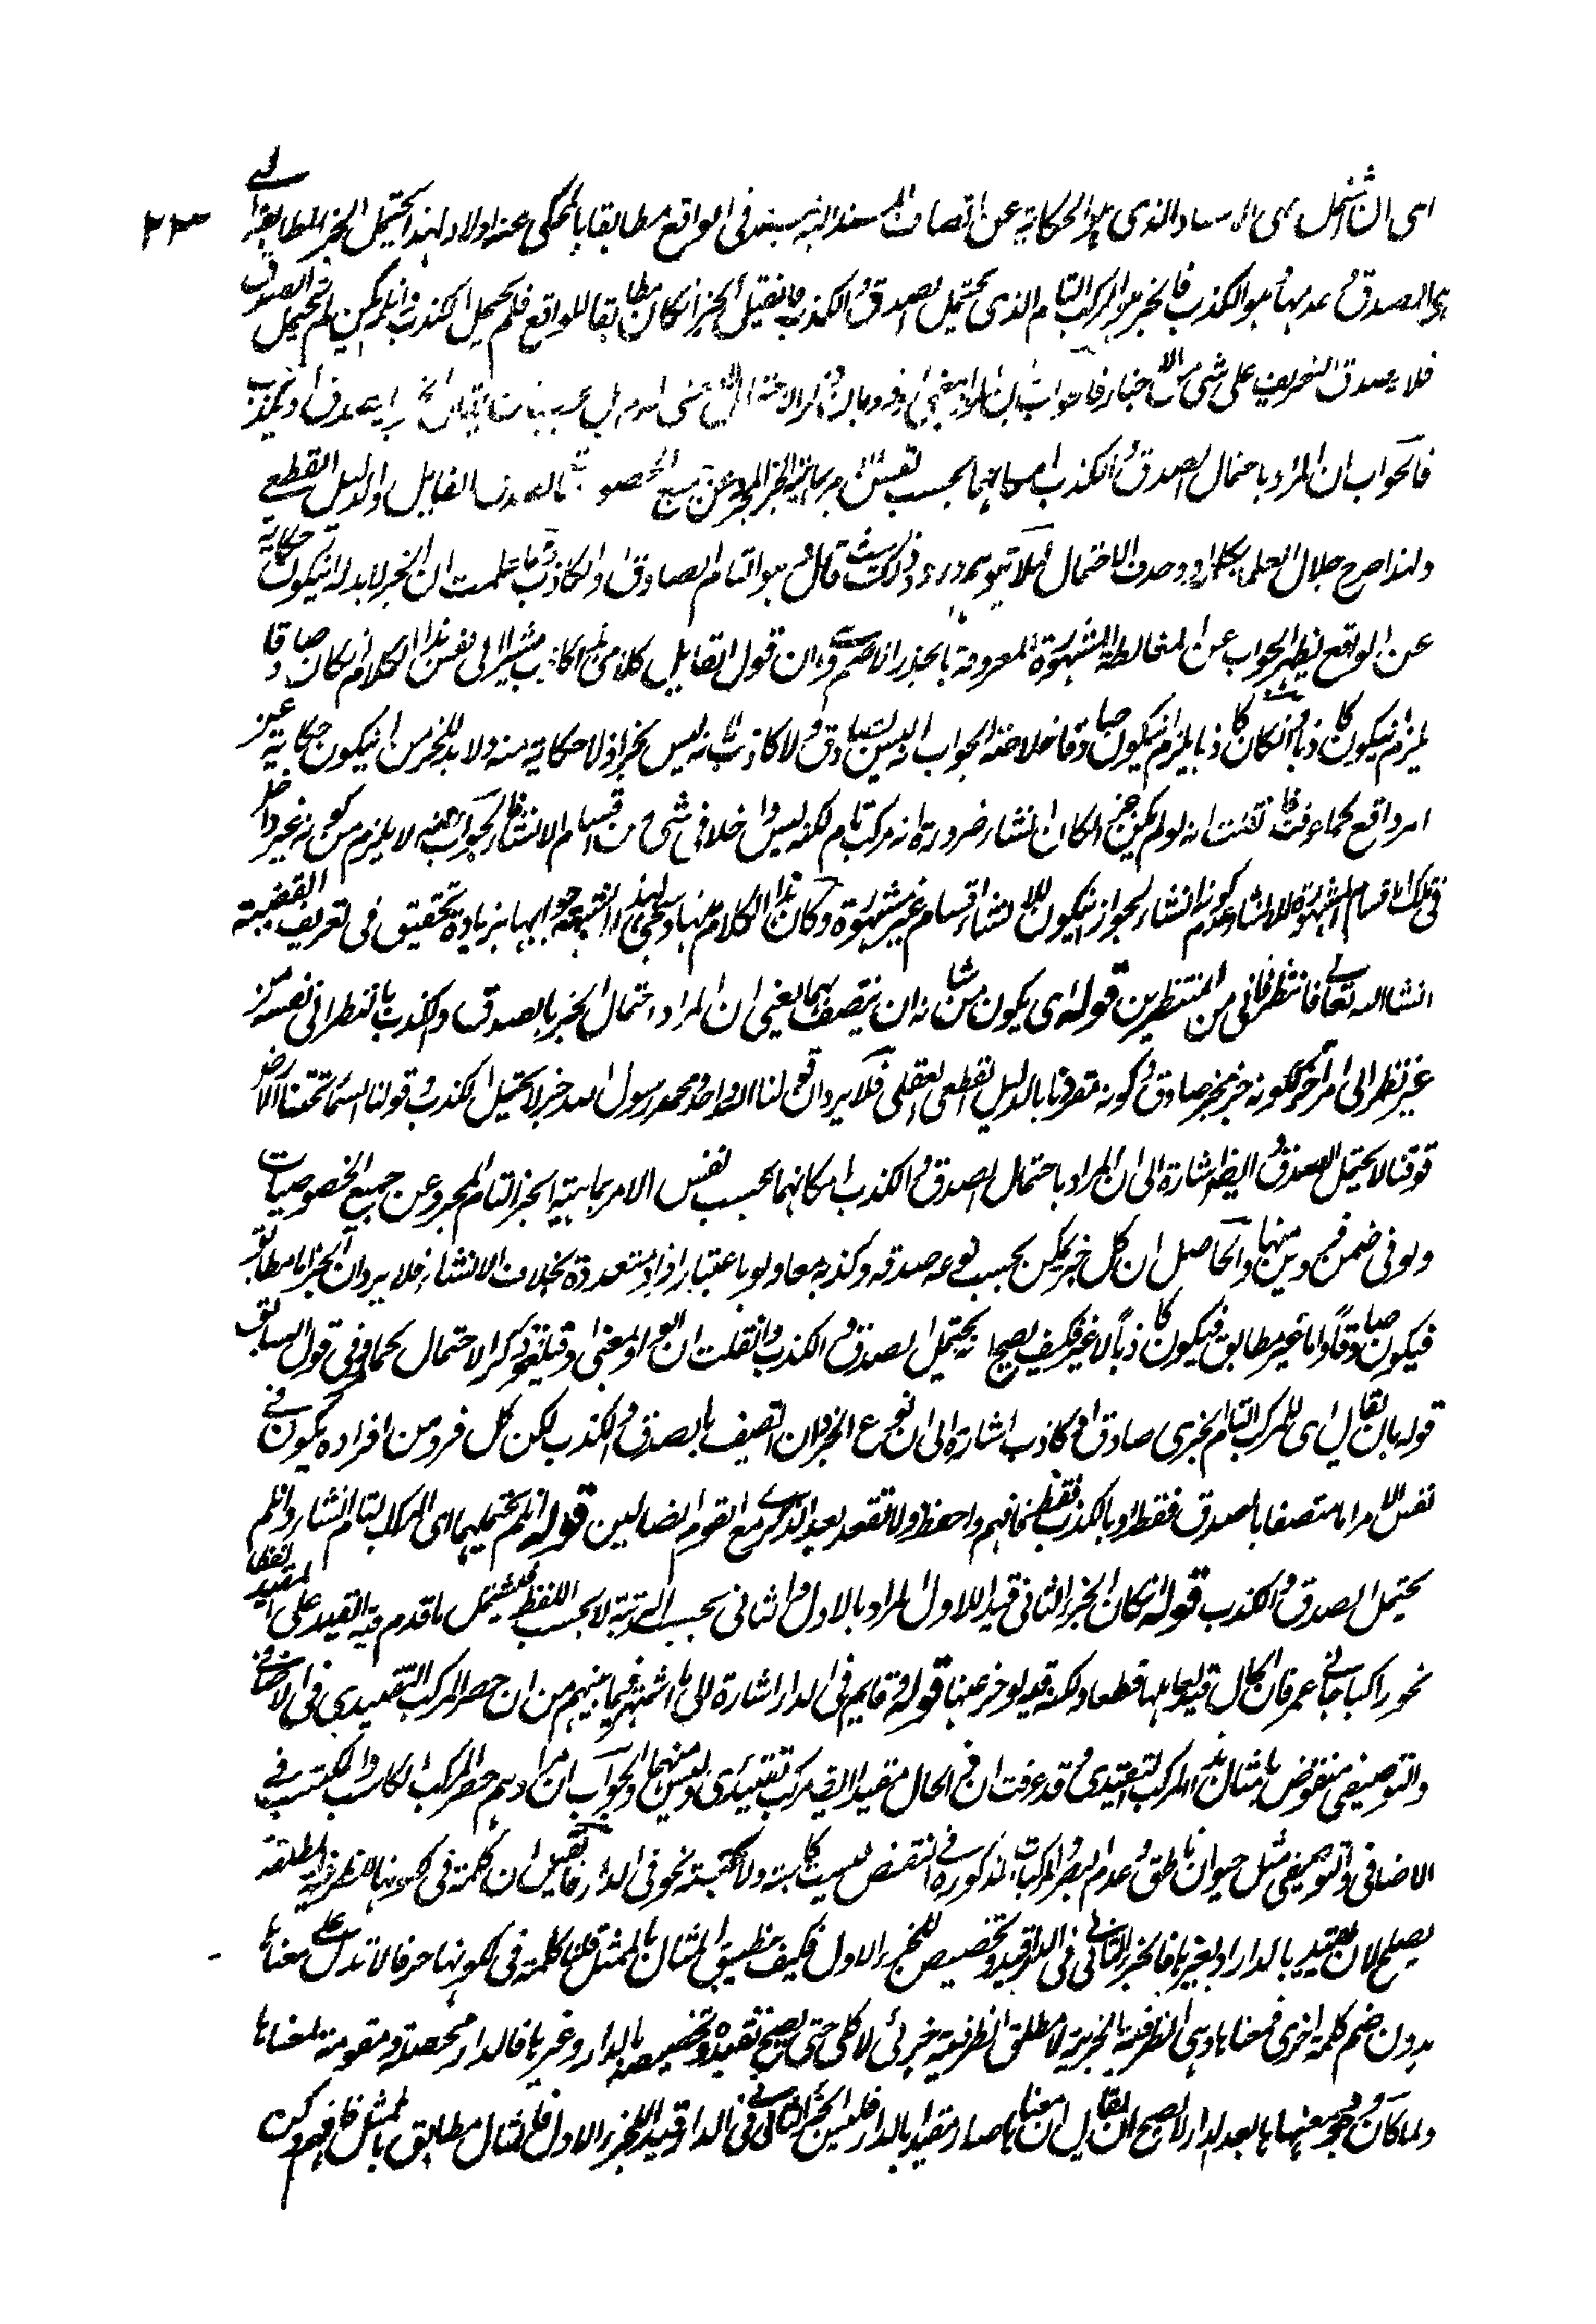 ٢٣
اى ان اشتمل على الاسناد الذى هو الحكاية عن اتصاف المسند اليه بالمسند فى الواقع مطابقا بالمحكى عنه اولا ولهذا يحتمل الخبر المطابقة التى
هى الصدق وعدمها هو الكذب فالخبر هو المركب التام الذى يحتمل الصدق والكذب فان قيل الخبر ان كان مطابقا للواقع فلم يحتمل الكذب وان لم يكن لم يحتمل الصدق
فلا يصدق التعريف على شئ من الاخبار فالجواب ان المراد
فالجواب ان المراد باحتمال الصدق والكذب امكانهما بحسب نفس ماهية الخبر المجرد عن جميع الخصوصيات القايل والدليل القطعى
ولهذا صرح جلال العلماء وحذف الاحتمال لئلا يتوهم وروده ذلك حيث قال هو التام الصادق والكاذب وبما علمت ان الخبر لا بد له ان يكون حكاية
عن الواقع يظهر الجواب عن المغالطة المشهورة المعروفة بالجذر الاصم وهى ان قول القايل كلامى هذا كاذب مشيرا الى نفس هذا الكلام ان كان صادقا
يلزم ان يكون كاذبا وان كان كاذبا يلزم ان يكون صادقا فخلاصة الجواب انه ليس بصادق ولا كاذب لانه ليس بخبر اذ لا حكاية منه ولا بد للخبر من ان يكون حكاية عن
امر واقع كما عرفت فان قلت انه لو لم يكن خبرا لكان انشاء ضرورة انه مركب تام لكنه ليس داخلا فى شئ من اقسام الانشاء فالجواب عنه لا يلزم من كونه غير داخل
فى تلك الاقسام المشهورة للانشاء عدم كونه انشاء لجواز ان يكون للانشاء اقسام غير مشهورة وكان هذا الكلام منها وسيجئ لهذه الشبهة جوابها بزيادة تحقيق فى تعريف القضية
انشاء الله تعالى فانتظر فانى من المنتظرين قوله اى يكون من شانه ان يتصف بهما يعنى ان المراد احتمال الخبر بالصدق والكذب بالنظر الى نفسه من
غير نظر الى امر آخر ككونه خبر مخبر صادق وكونه مقرونا بالدليل القطعى العقلى فلا يرد ان قولنا الله واحد ومحمد رسول الله خبر لا يحتمل الكذب وقولنا السماء تحتنا والارض
فوقنا لا يحتمل الصدق وايضا اشارة الى ان المراد باحتمال الصدق والكذب امكانهما بحسب نفس الامر بماهية الخبر التام المجرد عن جميع الخصوصيات
ولو فى ضمن فردين منها والحاصل ان كل خبر يمكن بحسب نوعه صدقه وكذبه معا ولو باعتبار افراد متعددة بخلاف الانشاء فلا يرد ان الخبر اما مطابق
فيكون صادقا واما غير مطابق فيكون كاذبا لا غير فكيف يصح انه يحتمل الصدق والكذب وان قلت ان الواو بمعنى او فيلغو ذكر الاحتمال كما وفى قول السابق
قوله بان يقال اى للمركب التام الخبرى صادق او كاذب اشارة الى ان نوع الخبر وان اتصف بالصدق والكذب لكن كل فرد من افراده يكون فى
نفس الامر اما متصفا بالصدق فقط او بالكذب فقط فافهم واحفظ ولا تقعد بعد الذكرى مع القوم الضالين قوله ان لم يحتملهما اى المركب التام انشاء وان لم
يحتمل الصدق والكذب قوله ان كان الجزء الثانى قيدا للاول المراد بالاول والثانى بحسب الرتبة لا بحسب اللفظ فيشتمل ما قدم فيه القيد على المقيد لفظا
نحو راكبا جائنى عمر فان الحال قيد لعاملها قطعا ولكنه قيد لو خر عنها قوله او قايم فى الدار اشارة الى ما اشتهر فيما بينهم من ان حصر المركب التقييدى فى الاضافى
والتوصيفى منقوض بامثال هذا المركب التقييدى وقد عرفت ان ذى الحال مقيدا ايضا مركب تقييدى وليس منهما والجواب ان مرادهم حصر المركب الكاسب والمكتسب فى
الاضافى والتوصيفى مثل حيوان ناطق وعدم البصر والمركبات المذكورة فى النقض ليست كاسبة ولا مكتسبة نحو فى الدار فان قيل ان كلمة فى لكونها للظرفية المطلقة
يصلح لان تقيد بالدار او بغيرها فالجزء الثانى فى الدار قيد وتخصيص للجزء الاول فكيف ينطبق المثال بالممثل قلنا كلمة فى لكونها حرفا لا تدل على معناها
بدون ضم كلمة اخرى فمعناها وهى الظرفية الجزئية لا مطلق الظرفية جزئى لا كلى حتى يصح تقييده وتخصيصه بالدار وغيرها فالدار محصلة ومقومة لمعناها
ولما كان وجود معنيها بعد الدار لا يصح ان يقال ان معناها صار مقيدا بالدار فليس الجزء الثانى فى فى الدار قيدا للجزء الاول فالمثال مطابق بالممثل فافهم وكن